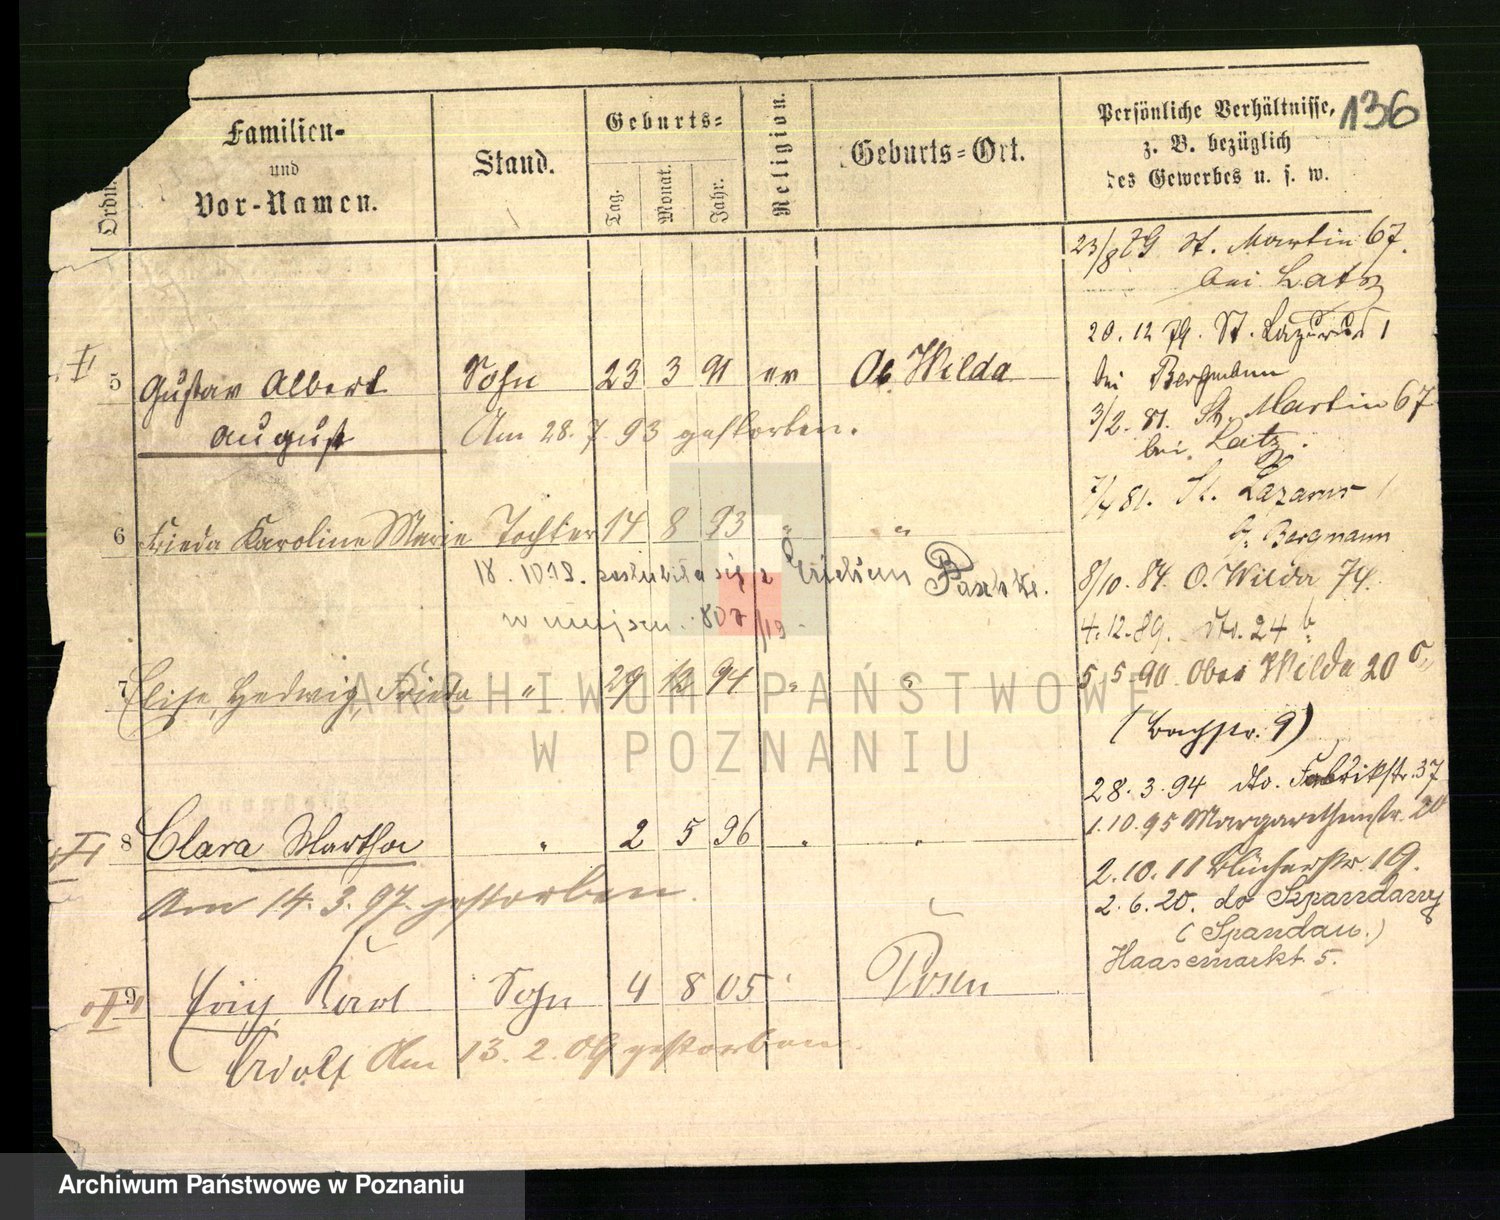 136
Ordn.
Familien-
und
Vor-Namen.
Stand.
Geburts-
Tag.
Monat.
Jahr.
Religion.
Geburts-Ort.
Persönliche Verhältnisse,
z. B. bezüglich
des Gewerbes u. s. w.
5 Gustav Albert Sohn 23 3 91 ev Ob. Wilda
August Am 28. 7. 93 gestorben.
6 Frieda Karoline Marie Tochter 14 8 93 " "
18. 10 19. poślubiła się z Paschke.
w miejscu. 807/19
7 Elise, Hedwig, Frieda " 29 12 94 " "
8 Clara Martha " 2 5 96 " "
Am 14. 3. 97 gestorben.
9 Erich Karl Sohn 4 8 05 " Posen
Adolf Am 13. 2. 06 gestorben.
23/8 79 St. Martin 67.
bei Latz
20. 12 79. St. Lazarus 1
bei Bergmann
3/2. 81. St. Martin 67
bei Latz.
81. St. Lazarus 1
b. Bergmann
8/10. 84. O. Wilda 74.
4. 12. 89. dto. 24 b
5 5 90 Ober Wilda 20
(Bachstr. 9)
28. 3. 94 dto. Fabrikstr. 37
1. 10. 95 Margarethenstr. 20
2. 10. 11 Blücherstr. 19.
2. 6. 20. do Szpandawy
(Spandau.)
Haasemarkt 5.
ARCHIWUM PAŃSTWOWE
W POZNANIU
Archiwum Państwowe w Poznaniu